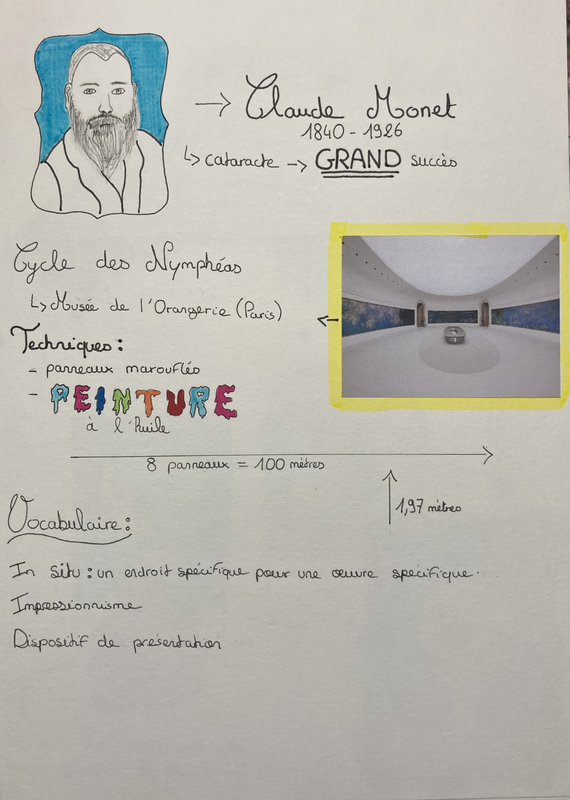 → Claude Monet
1840 - 1926
↳ cataracte → GRAND succès
Cycle des Nymphéas
↳ Musée de l'Orangerie (Paris)
Techniques :
- panneaux marouflés
- PEINTURE
à l'huile
8 panneaux = 100 mètres
1,97 mètres
Vocabulaire :
In situ : un endroit spécifique pour une œuvre spécifique.
Impressionnisme
Dispositif de présentation